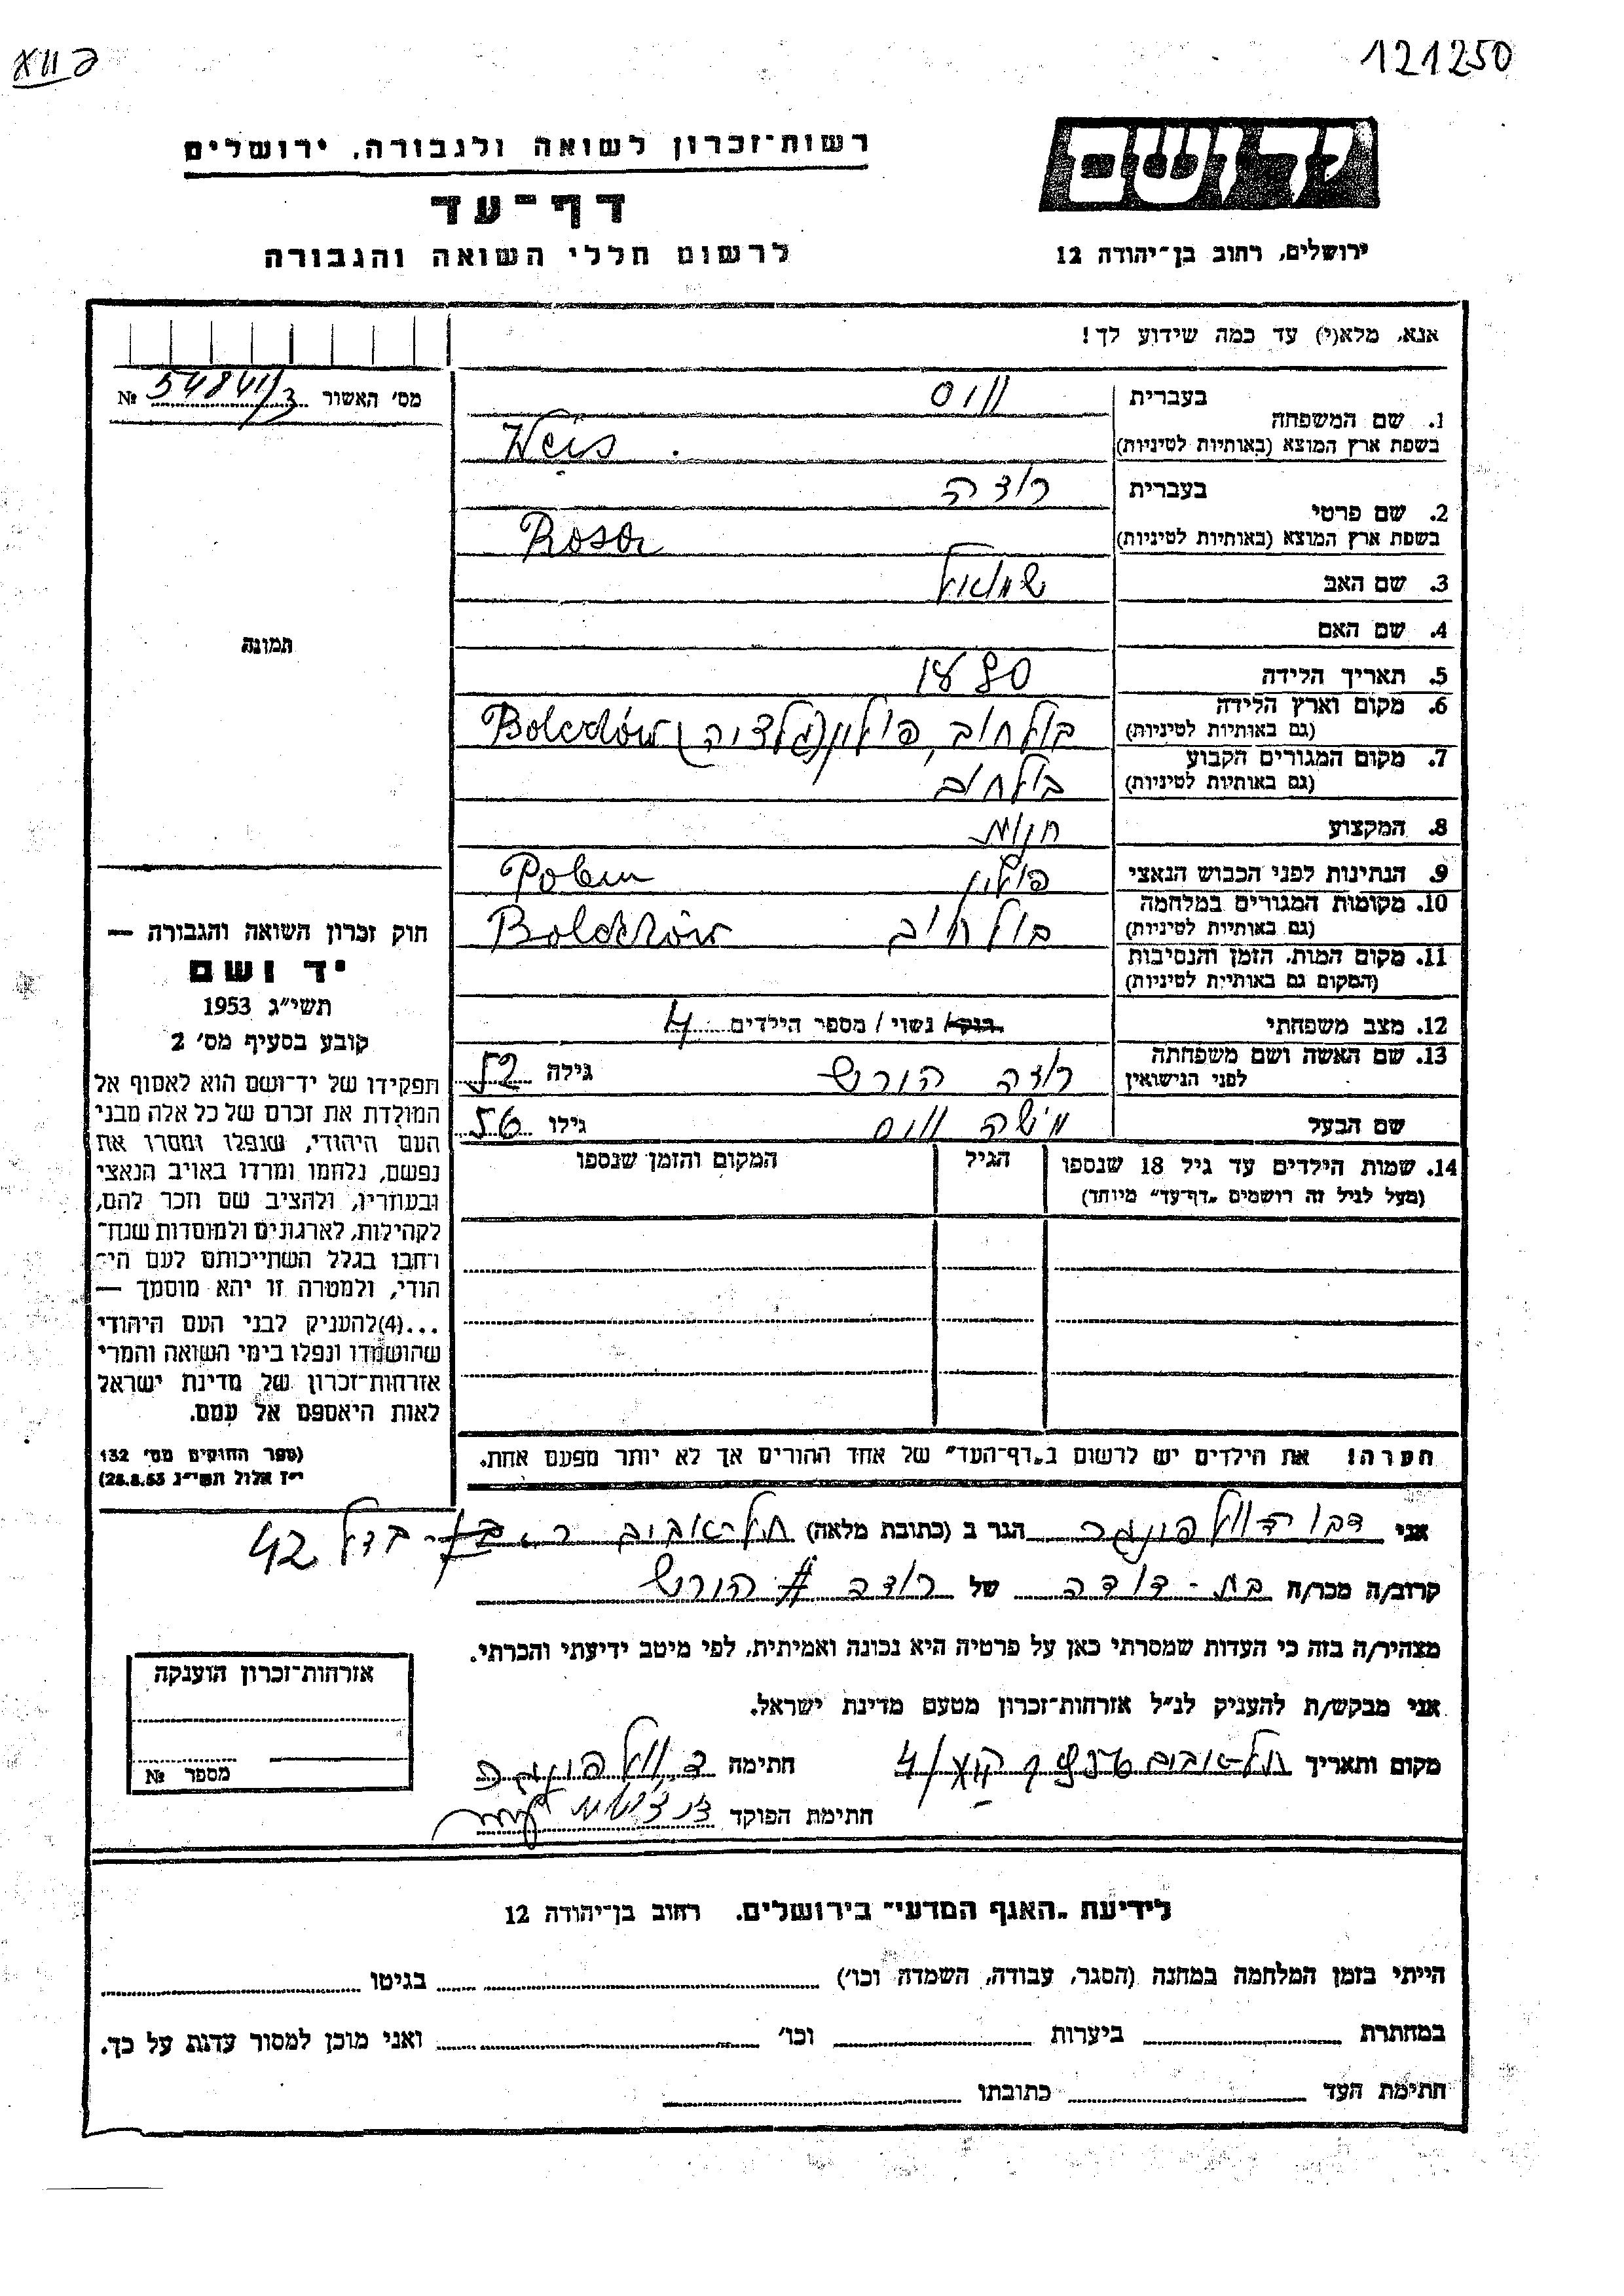 121250
רשות־זכרון לשואה ולגבורה, ירושלים
יד ושם
דף־עד
לרשום חללי השואה והגבורה
ירושלים, רחוב בן־יהודה 12
אנא, מלא(י) עד כמה שידוע לך!
מס׳ האשור № 54841/3
1. שם המשפחה בעברית ווייס
בשפת ארץ המוצא (באותיות לטיניות) Weis
2. שם פרטי בעברית רוזה
בשפת ארץ המוצא (באותיות לטיניות) Rosa
3. שם האב שמואל
4. שם האם
תמונה
5. תאריך הלידה 1880
6. מקום וארץ הלידה בולחוב, פולין (גליציה) Bolechów
(גם באותיות לטיניות)
7. מקום המגורים הקבוע בולחוב
(גם באותיות לטיניות)
8. המקצוע
9. הנתינות לפני הכבוש הנאצי פולין Polen
10. מקומות המגורים במלחמה בולחוב Bolechów
(גם באותיות לטיניות)
11. מקום המות, הזמן והנסיבות
(המקום גם באותיות לטיניות)
12. מצב משפחתי רוק/ נשוי / מספר הילדים 4
13. שם האשה ושם משפחתה רוזה הורש גילה 52
לפני הנישואין
שם הבעל משה ווייס גילו 56
14. שמות הילדים עד גיל 18 שנספו הגיל המקום והזמן שנספו
(מעל לגיל זה רושמים „דף־עד״ מיוחד)
חוק זכרון השואה והגבורה —
יד ושם
תשי״ג 1953
קובע בסעיף מס׳ 2
תפקידו של יד־ושם הוא לאסוף אל
המולדת את זכרם של כל אלה מבני
העם היהודי, שנפלו ומסרו את
נפשם, נלחמו ומרדו באויב הנאצי
ובעוזריו, ולהציב שם וזכר להם,
לקהילות, לארגונים ולמוסדות שנח־
רחבו בגלל השתייכותם לעם הי־
הודי, ולמטרה זו יהא מוסמך —
...(4) להעניק לבני העם היהודי
שהושמדו ונפלו בימי השואה והמרי
אזרחות־זכרון של מדינת ישראל
לאות היאספם אל עמם.
(ספר החוקים מס׳ 132
י״ז אלול תשי״ג 28.8.53)
הערה! את הילדים יש לרשום ב„דף־העד״ של אחד ההורים אך לא יותר מפעם אחת.
אני הגר ב (כתובת מלאה) תל־אביב 42
קרוב/ה מכר/ה בת-דודה של רוזה הורש
מצהיר/ה בזה כי העדות שמסרתי כאן על פרטיה היא נכונה ואמיתית, לפי מיטב ידיעתי והכרתי.
אני מבקש/ת להעניק לנ״ל אזרחות־זכרון מטעם מדינת ישראל.
מקום ותאריך תל־אביב חתימה
חתימת הפוקד
אזרחות־זכרון הוענקה
מספר №
לידיעת „האגף המדעי״ בירושלים, רחוב בן־יהודה 12
הייתי בזמן המלחמה במחנה (הסגר, עבודה, השמדה וכו׳) בגיטו
במחתרת ביערות וכו׳ ואני מוכן למסור עדות על כך.
חתימת העד כתובתו